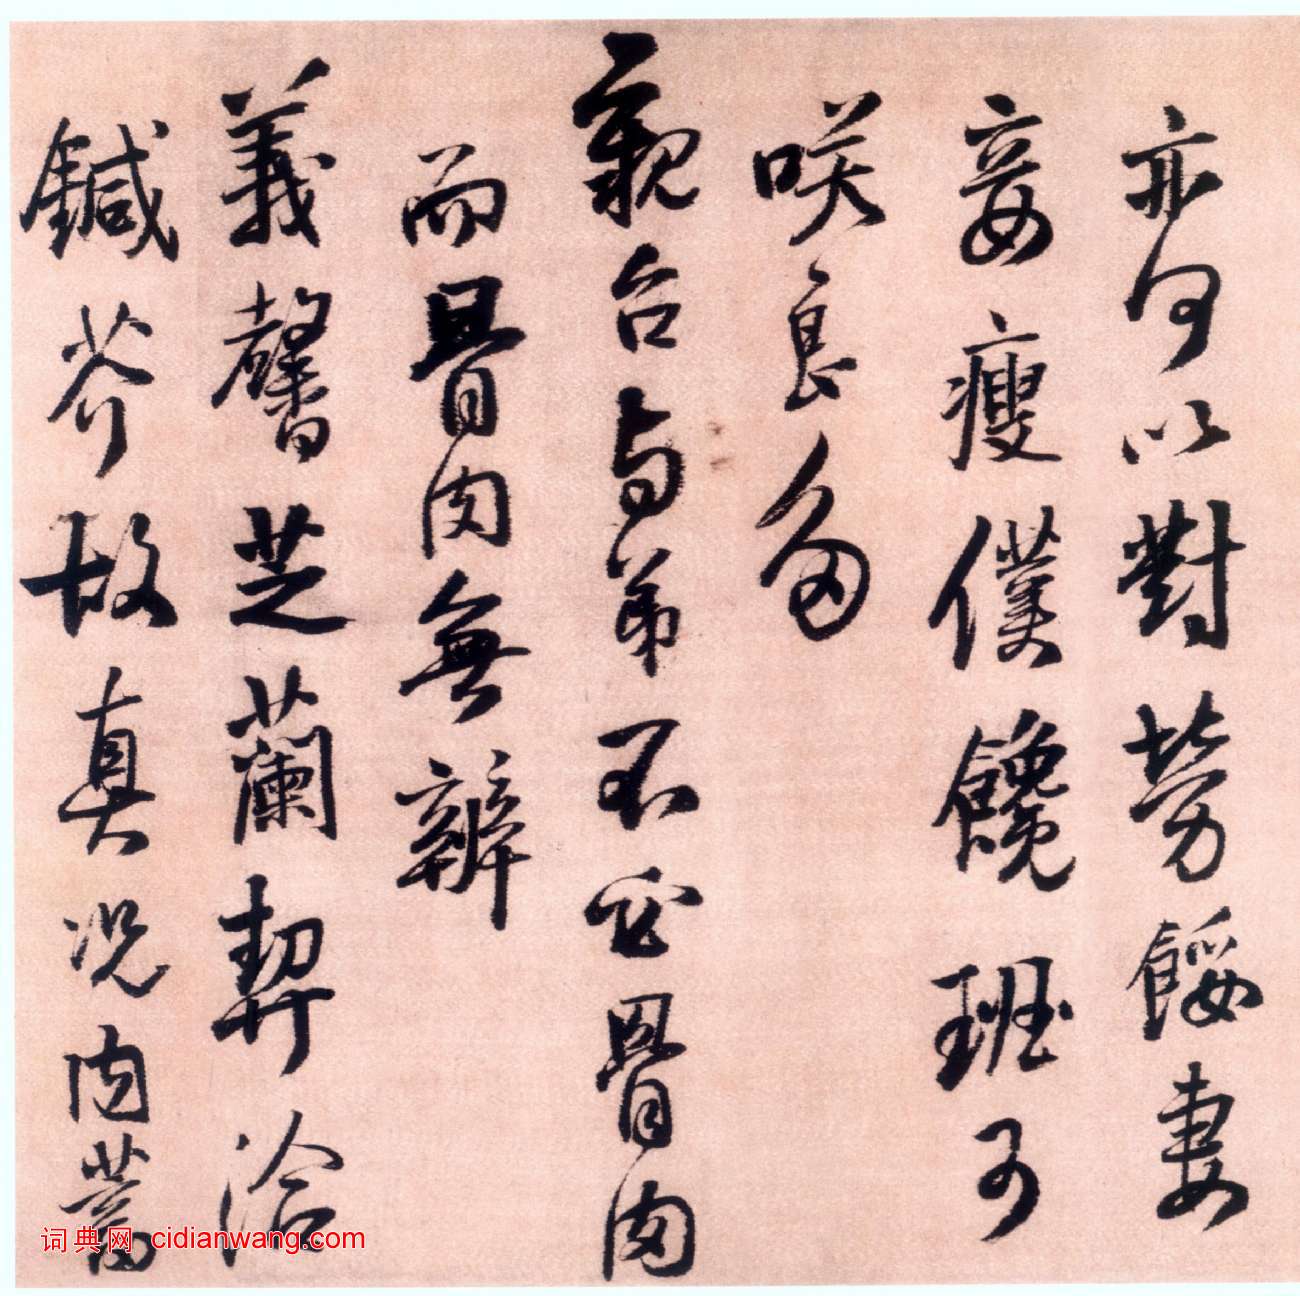 亦何以對勞餒妻
妾瘦僕饞班可
咲息多
親台與弟不啻骨肉
而骨肉無辨
義馨芝蘭契洽
鍼芥故真況肉
词典网 cidianwang.com